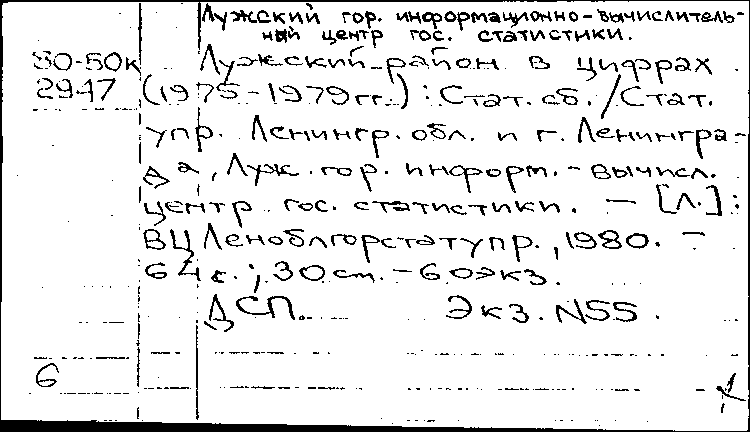 Лужский гор. информационно-вычислитель-
ный центр гос. статистики.
80-50к Лужский район в цифрах
2947 (1975-1979гг.): Стат. сб. / Стат.
упр. Ленингр. обл. и г. Ленингра-
да, Луж. гор. информ.-вычисл.
центр гос. статистики. — [Л.]:
ВЦ Леноблгорстатупр., 1980. —
64 с.; 30 см. — 60экз.
ДСП. Экз. N55.
6